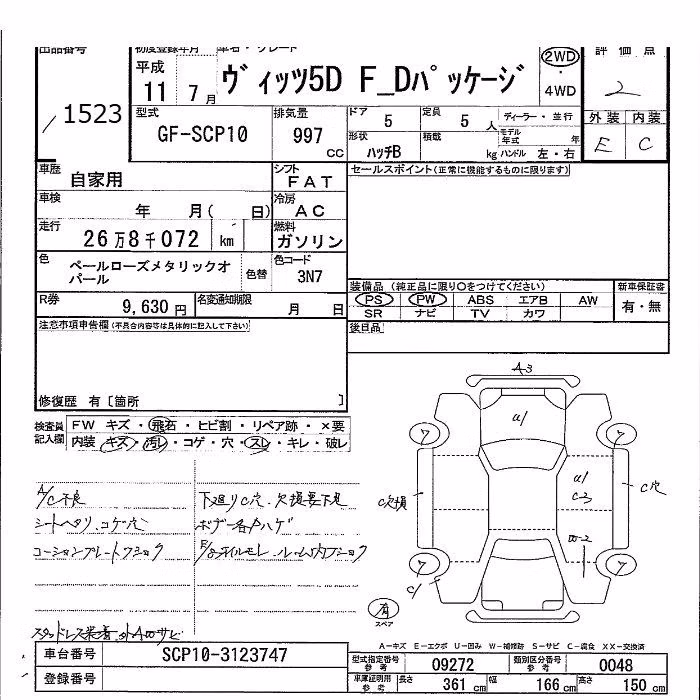 出品番号 初度登録年月 車名・グレード 2WD 評価点
平成 ヴィッツ5D F_Dパッケージ ・
1523 11 7月 4WD 2
型式 排気量 ドア 5 定員 5人 ディーラー・並行 外装 内装
GF-SCP10 997cc 形状 ハッチB 積載 kg モデル年式 年 E C
ハンドル 左・右
車歴 自家用 シフト FAT セールスポイント(正常に機能するものに限ります)
車検 年 月( 日) 冷房 AC
走行 26万8千072 km 燃料 ガソリン
色 ペールローズメタリックオパール 色替 色コード 3N7
装備品 (純正品に限り○をつけてください) 新車保証書
R券 9,630円 名変通知期限 月 日 PS PW ABS エアB AW 有・無
SR ナビ TV カワ
注意事項申告欄(不具合内容等は具体的に記入して下さい) 後日品
修復歴 有[箇所 ]
検査員記入欄 FW キズ・飛石・ヒビ割・リペア跡・×要
内装 キズ・汚レ・コゲ・穴・スレ・キレ・破レ
A3
a/
ワ ワ
a/
C3
C欠損 C穴
W-2
ワ ワ
C/
有
スペア
A/C不良 下廻りC穴、欠損要下見
シートヘタリ、コゲ穴
コーションプレート
スタッドレス
A−キズ E−エクボ U−凹み W−補修跡 S−サビ C−腐食 XX−交換済
車台番号 SCP10-3123747 型式指定番号 参考 09272 類別区分番号 参考 0048
登録番号 車庫証明用 参考 長さ 361cm 幅 166cm 高さ 150cm